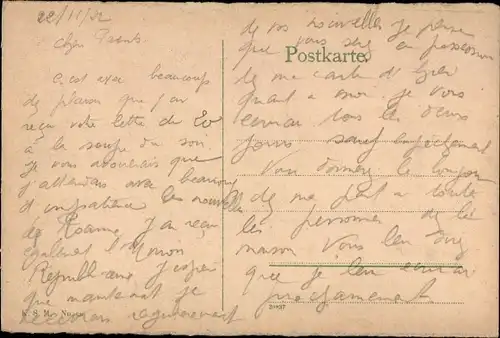 22/11/
Chers Parents
C'est avec beaucoup
de plaisir que j'ai
reçu votre lettre du 20
à la soupe du soir
Je vous avouerais que
j'attendais avec beaucoup
d'impatience les nouvelles
de Roanne J'ai reçu
également l'Union
Républicaine J'espère
que maintenant je
recevrai régulièrement
Postkarte.
de vos nouvelles Je pense
que vous serez en possession
de ma carte d'hier
quant a moi je vous
écrirai tous les deux
jours sauf empêchement
Vous donnerez le bonjour
de ma part a toute
les personnes de la
maison Vous leur direz
que je leur écrirai
prochainement